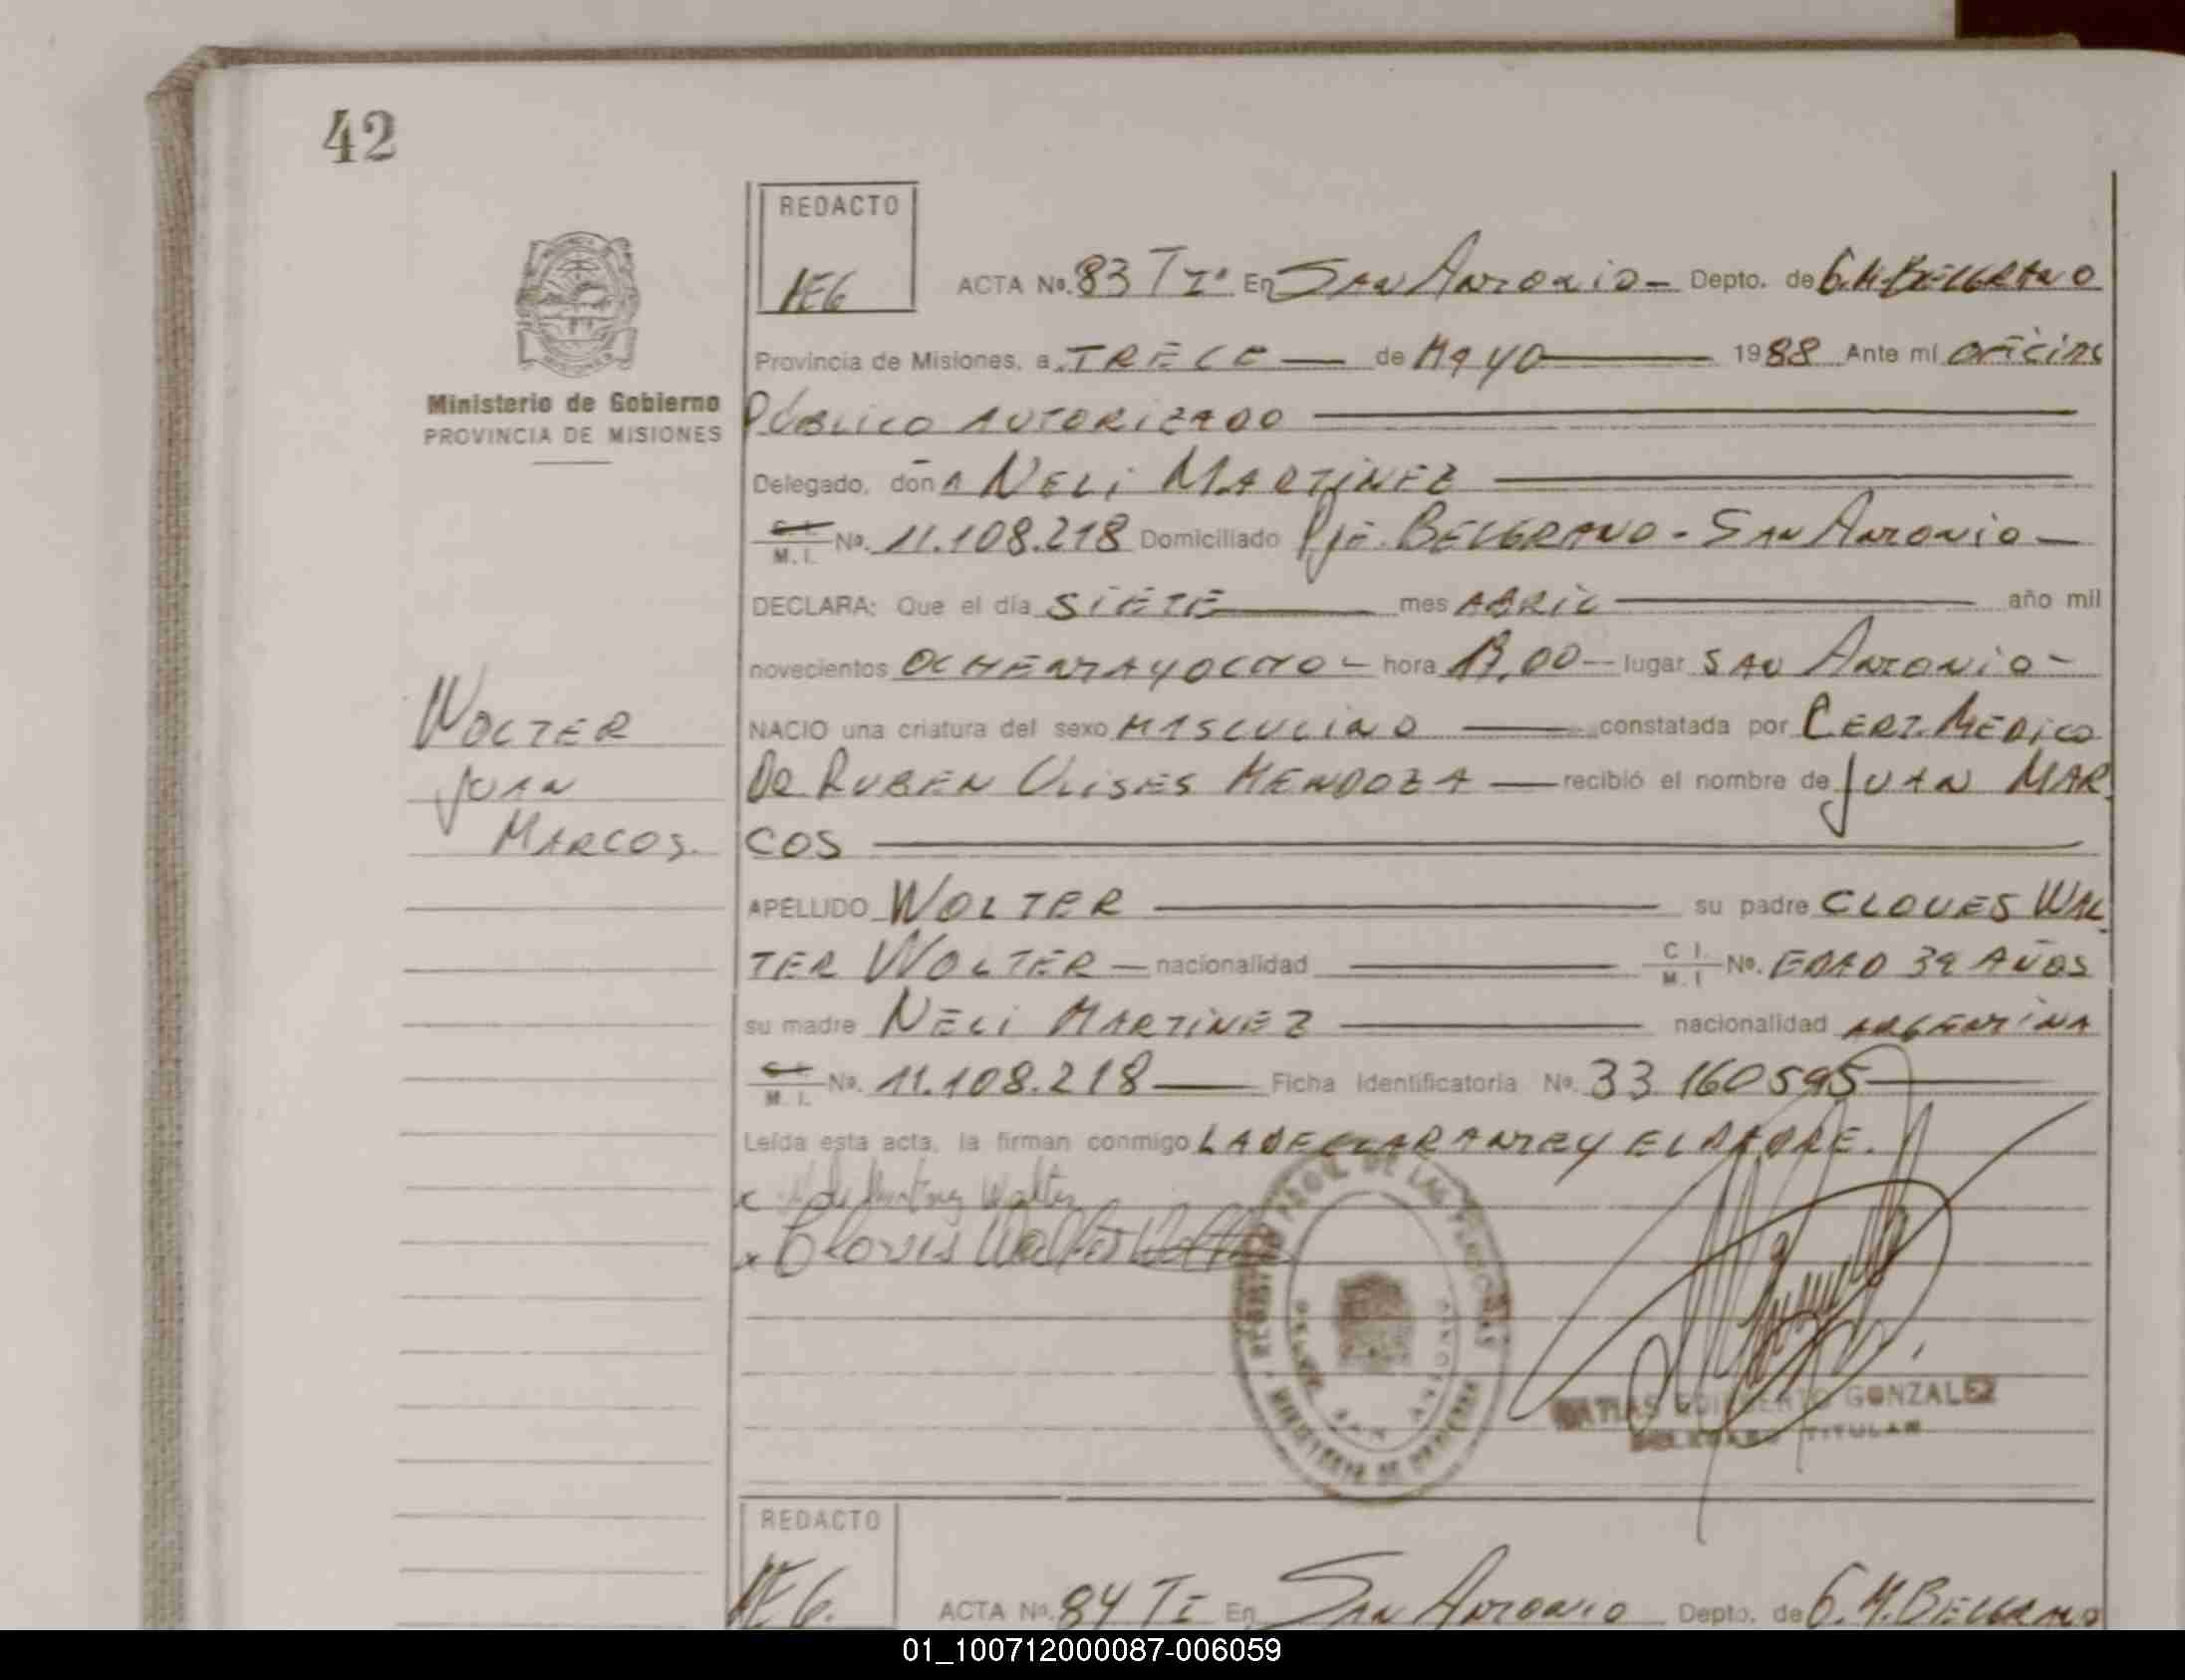 42
REDACTO
ACTA No. 83 T I° En San Antonio - Depto. de G.M. BELGRANO
Provincia de Misiones, a TRECE de MAYO 1988 Ante mí oficina
Ministerio de Gobierno
PROVINCIA DE MISIONES
PÚBLICO AUTORIZADO
Delegado, doña NELI MARTÍNEZ
C.I. M.I. No. 11.108.218 Domiciliado Pje. BELGRANO - SAN ANTONIO -
DECLARA: Que el día SIETE mes ABRIL año mil
novecientos OCHENTA Y OCHO - hora lugar SAN ANTONIO -
NACIO una criatura del sexo MASCULINO constatada por CERT. MEDICO
DR RUBEN ULISES MENDOZA recibió el nombre de JUAN MAR
COS
WOLTER
JUAN
MARCOS.
APELLIDO WOLTER su padre CLOVES WAL-
TER WOLTER nacionalidad C I. M. I No. EDAD 39 AÑOS
su madre NELI MARTÍNEZ nacionalidad ARGENTINA
C.I. M. I. No. 11.108.218 Ficha Identificatoria No. 33 160595
Leída esta acta, la firman conmigo LA DECLARANTE Y EL PADRE.
Clovis Walter Wolter
REGISTRO PROV. DE LAS PERSONAS
SAN ANTONIO
MATIAS EDILBERTO GONZALEZ
DELEGADO TITULAR
REDACTO
ACTA No. 84 T I En San Antonio Depto. de G.M. BELGRANO
01_100712000087-006059